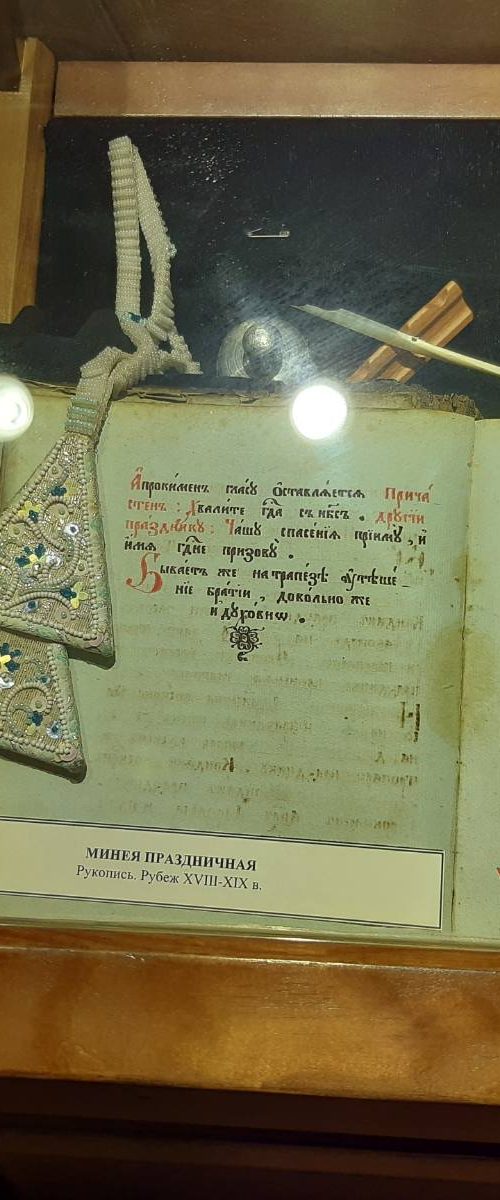 А҆прокїменъ гласꙋ ѻ҆ставлѧ́етсѧ Прича́
стенъ : Хвали́те гд҇а съ нб҃съ . дрꙋгі́й
пра́здникꙋ : Ча́шꙋ спасе́нїѧ прїимꙋ̀ , и҆
и҆́мѧ гд҇не призовꙋ̀ .
Быва́етъ же на трапе́зѣ ᲂу҆тѣше́
нїе бра́тїи , дово́льно же
и҆ дꙋхо́внѡ .
МИНЕЯ ПРАЗДНИЧНАЯ
Рукопись. Рубеж XVIII-XIX в.